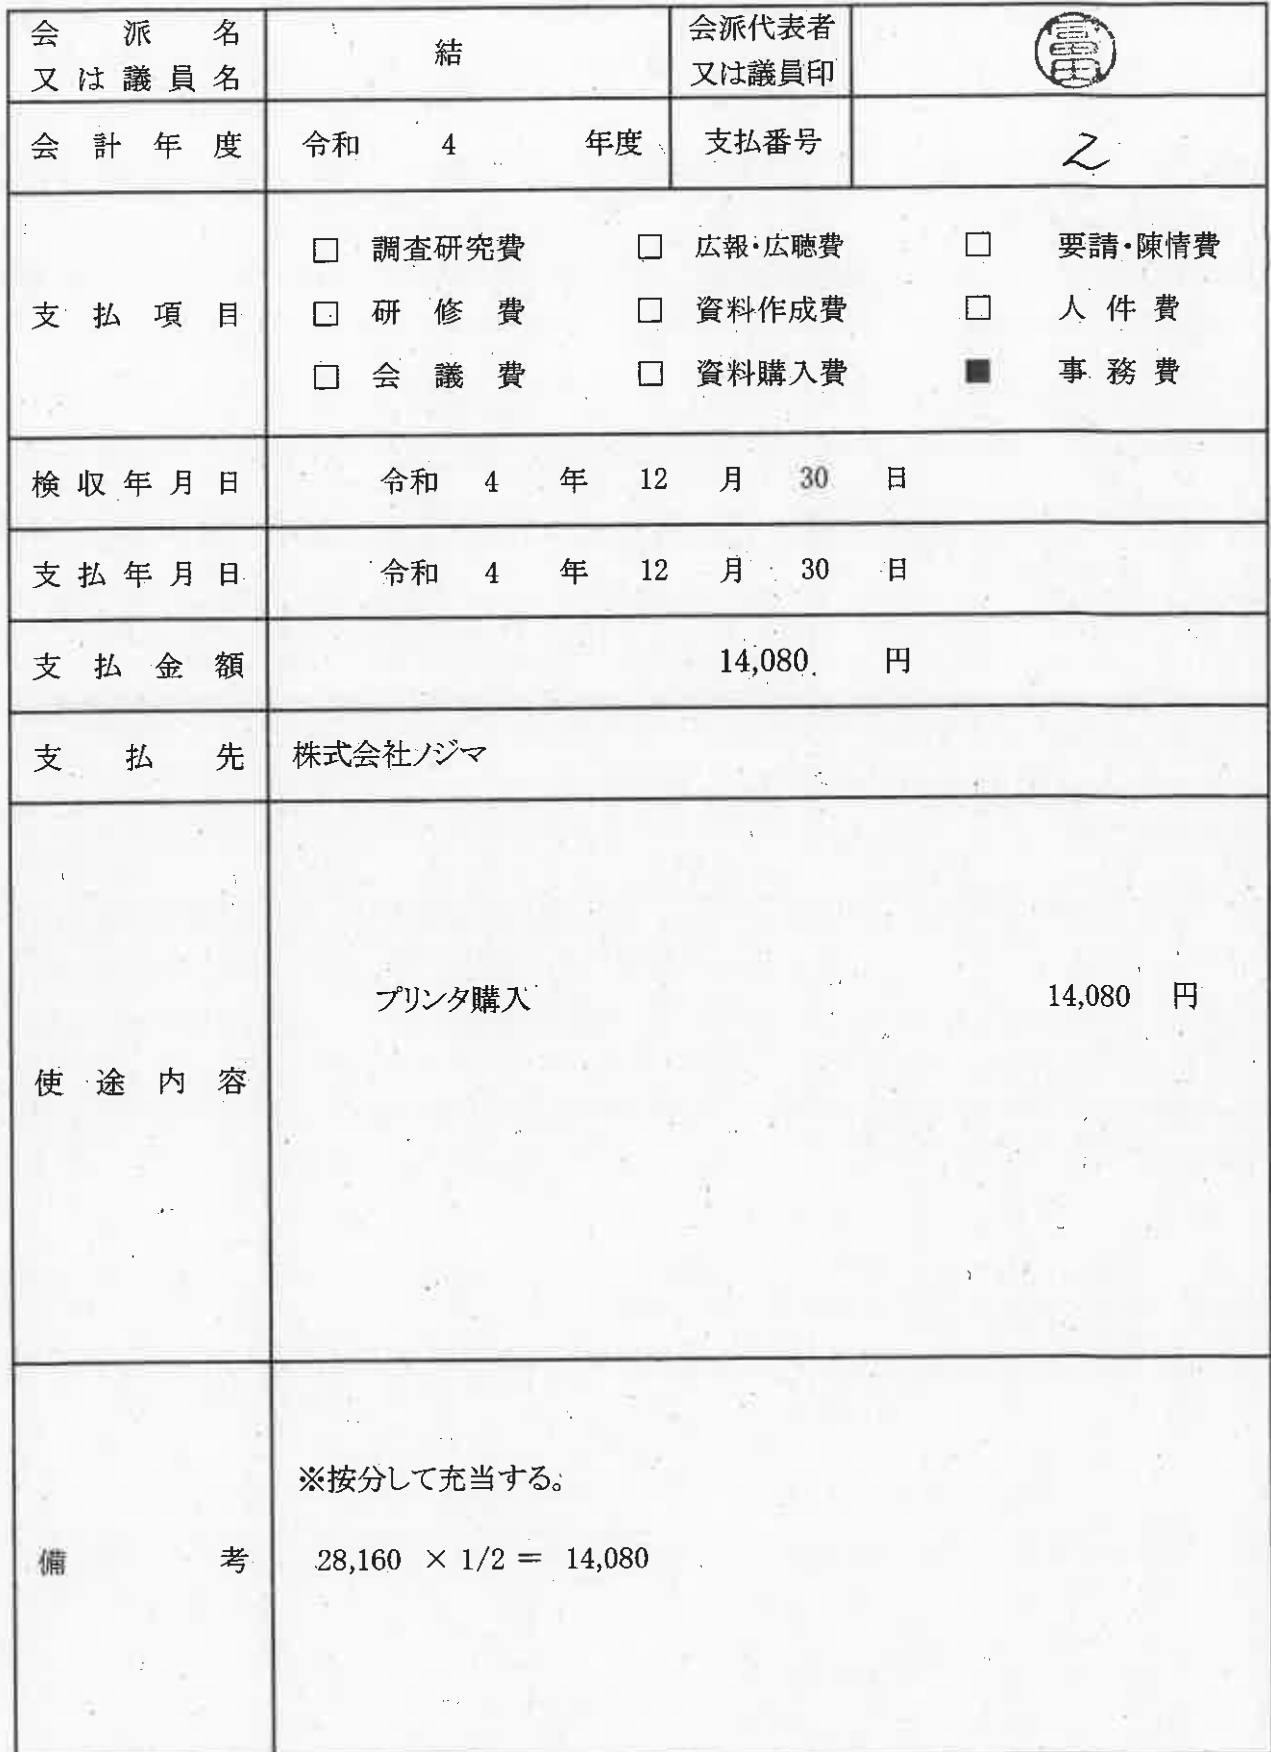 会派名 結 会派代表者
又は議員名 又は議員印
会計年度 令和 4 年度 支払番号 2
□ 調査研究費 □ 広報・広聴費 □ 要請・陳情費
支払項目 □ 研修費 □ 資料作成費 □ 人件費
□ 会議費 □ 資料購入費 ■ 事務費
検収年月日 令和 4 年 12 月 30 日
支払年月日 令和 4 年 12 月 30 日
支払金額 14,080 円
支払先 株式会社ノジマ
プリンタ購入 14,080 円
使途内容
※按分して充当する。
備考 28,160 × 1/2 = 14,080